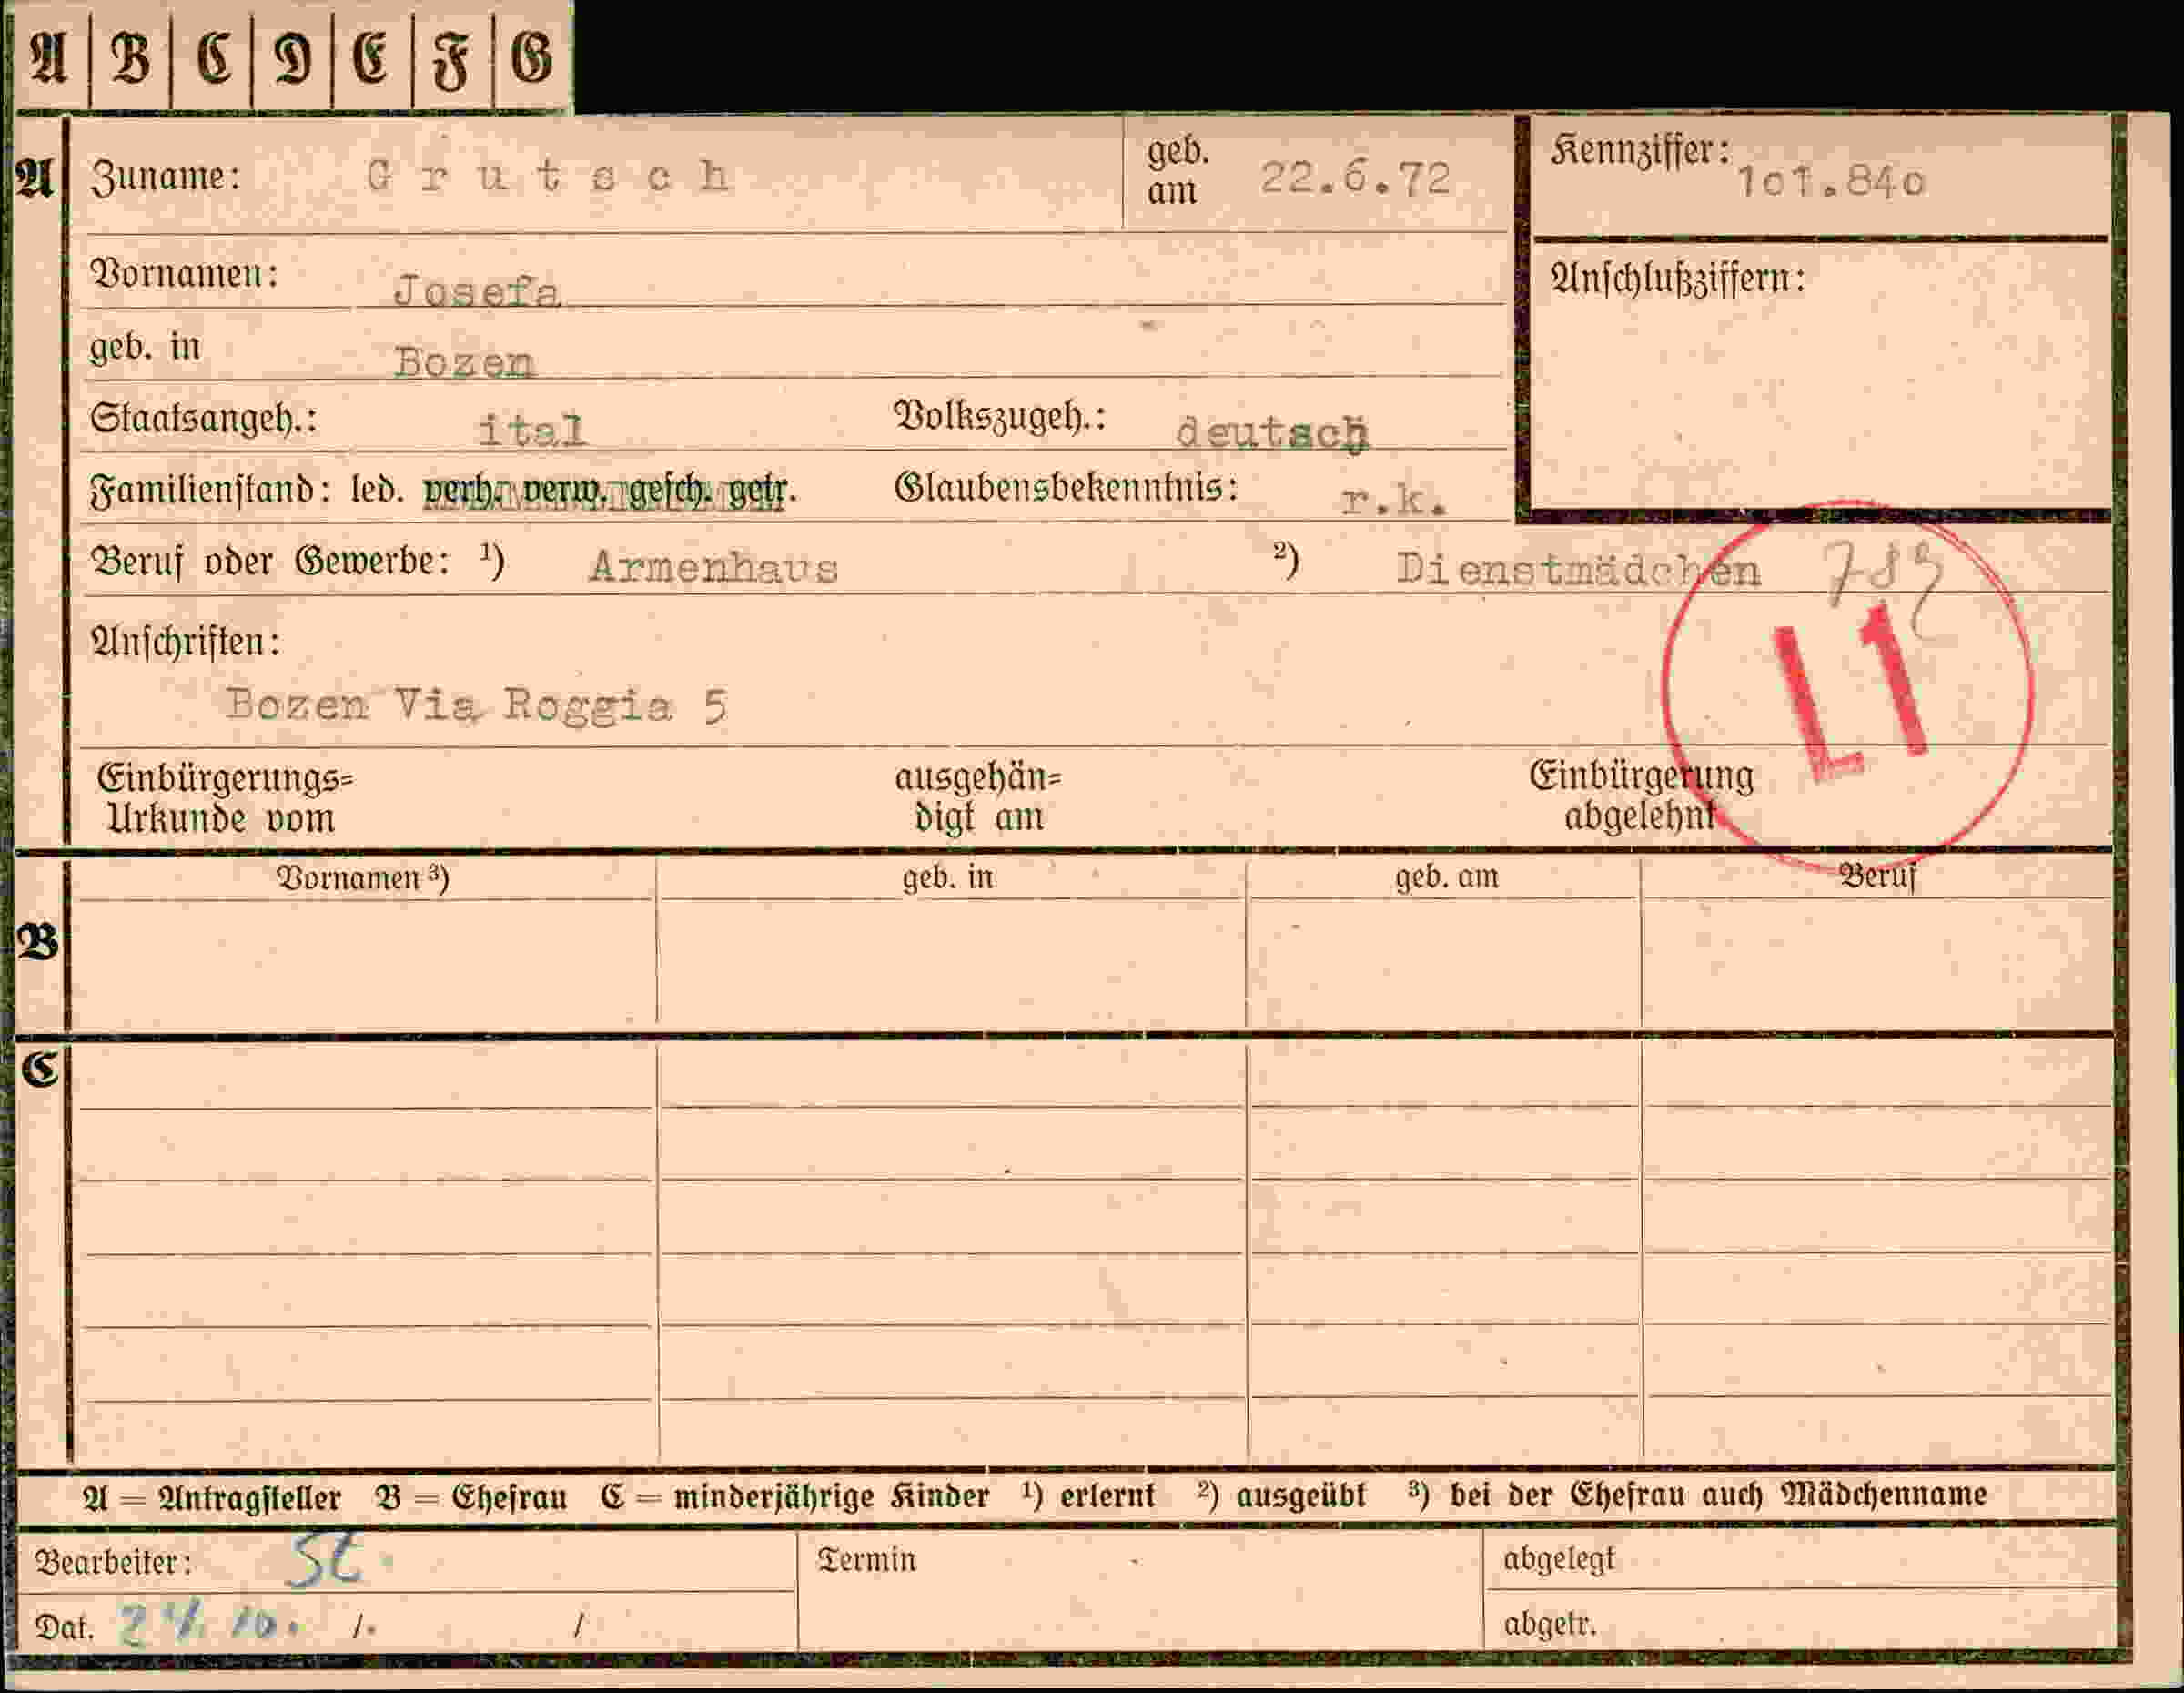 A B C D E F G
A Zuname: Grutsch geb. am 22.6.72 Kennziffer: 1o1.84o
Vornamen: Josefa Anschlußziffern:
geb. in Bozen
Staatsangeh.: ital Volkszugeh.: deutsch
Familienstand: led. verh. verw. gesch. getr. Glaubensbekenntnis: r.k.
Beruf oder Gewerbe: ¹) Armenhaus ²) Dienstmädchen 789
Anschriften:
L1
Bozen Via Roggia 5
Einbürgerungs= ausgehän= Einbürgerung
Urkunde vom digt am abgelehnt
Vornamen ³) geb. in geb. am Beruf
B
C
A = Antragsteller B = Ehefrau C = minderjährige Kinder ¹) erlernt ²) ausgeübt ³) bei der Ehefrau auch Mädchenname
Bearbeiter: St Termin abgelegt
Dat. 24. 10. /. / abgetr.